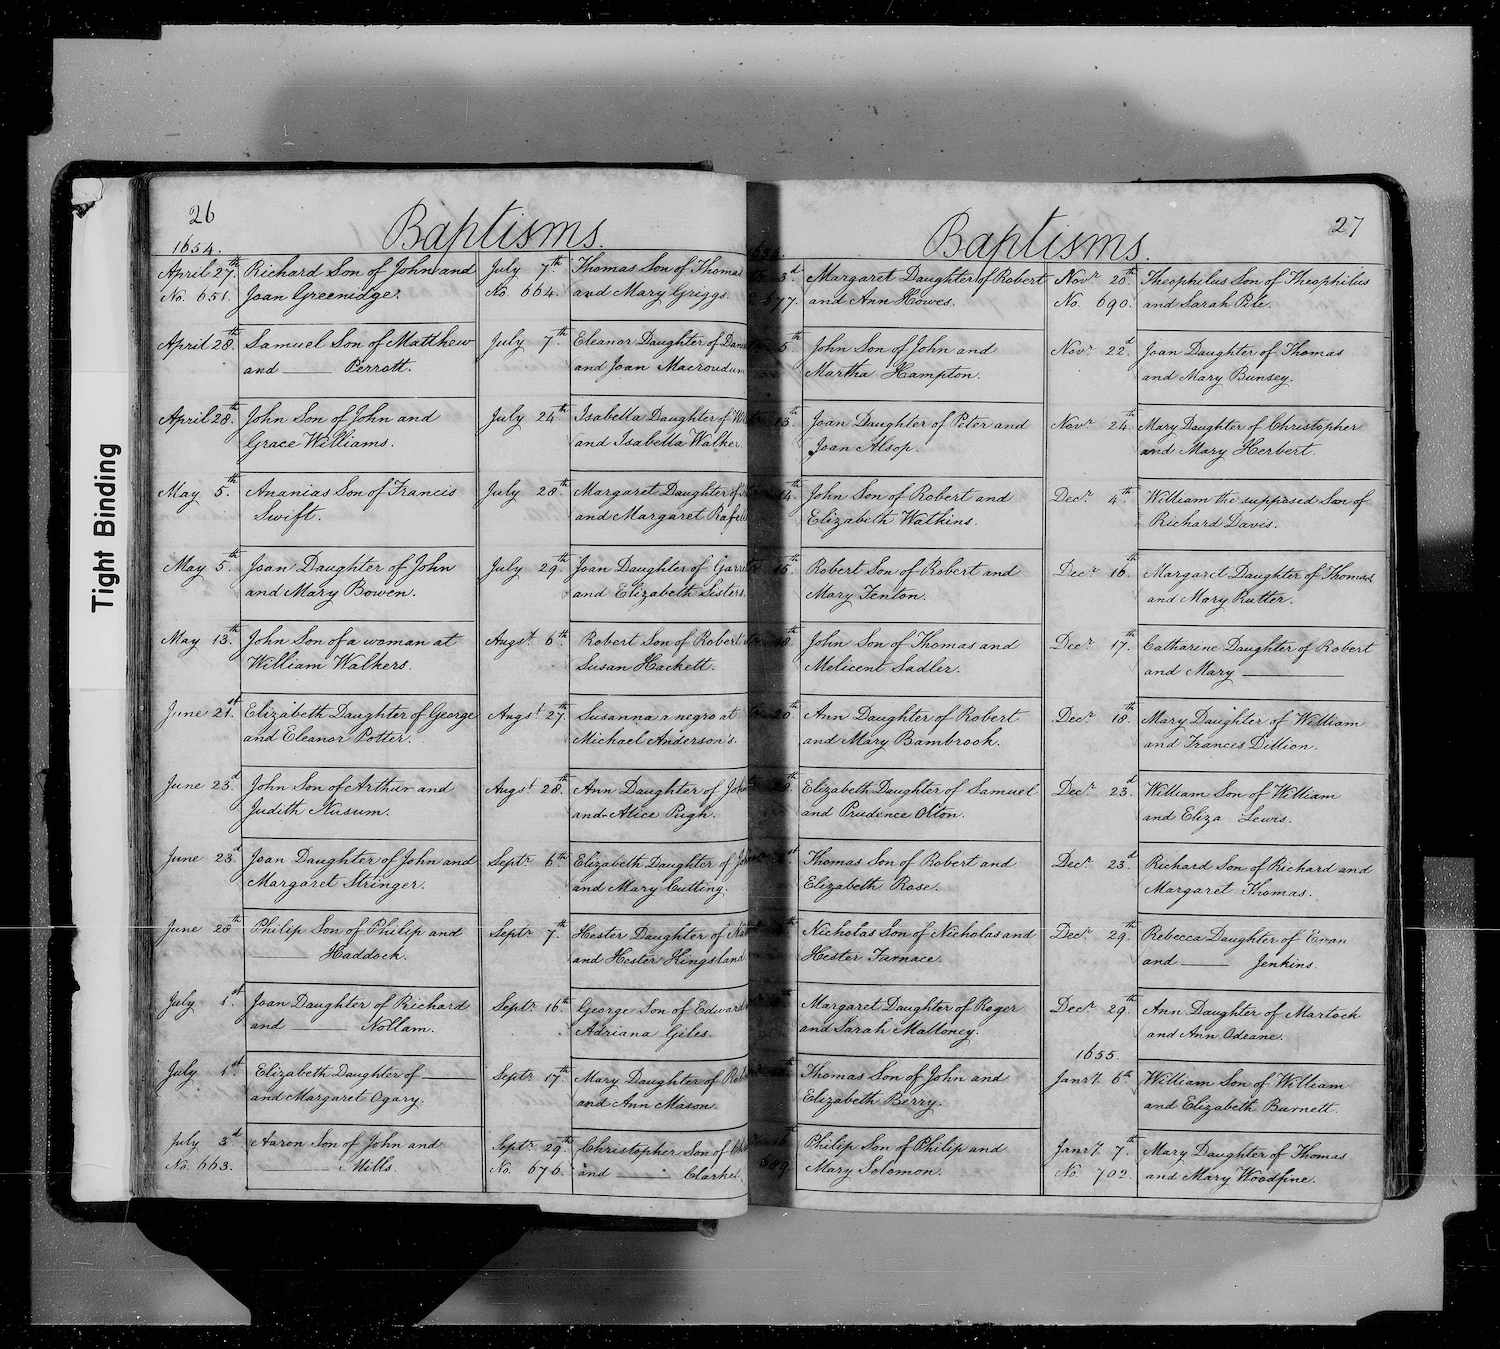 Tight Binding
26
Baptisms.
1654.
April 27th. Richard Son of John and
No. 651. Joan Greenidge.
April 28th. Samuel Son of Matthew
and —— Perrott.
April 28th. John Son of John and
Grace Williams.
May 5th. Ananias Son of Francis
Swift.
May 5th. Joan Daughter of John
and Mary Bowen.
May 13th. John Son of a woman at
William Walkers.
June 21st. Elizabeth Daughter of George
and Eleanor Potter.
June 23d. John Son of Arthur and
Judith Nusum.
June 23d. Joan Daughter of John and
Margaret Stringer.
June 28th Philip Son of Philip and
—— Haddock.
July 1st. Joan Daughter of Richard
and —— Nollam.
July 1st. Elizabeth Daughter of ——
and Margaret Ogary.
July 3d Aaron Son of John and
No. 663. —— Mills.
July 7th. Thomas Son of Thomas
No. 664. and Mary Griggs.
July 7th Eleanor Daughter of
and Joan
July 24th Isabella Daughter of
and Isabella Walker.
July 28th. Margaret Daughter of
and Margaret
July 29th. Joan Daughter of
and Elizabeth Sisters.
Augst. 6th. Robert Son of Robert
Susan Hackett.
Augst. 27th. Susanna a negro at
Michael Anderson's.
Augst. 28th. Ann Daughter of
and Alice Pugh.
Septr. 6th. Elizabeth Daughter of
and Mary Cutting.
Septr. 7th. Hester Daughter of
and Hester Kingsland
Septr. 16th. George Son of Edward
Adriana Giles.
Septr. 17th. Mary Daughter of
and Ann Mason.
Septr. 29th. Christopher Son of
No. 676. and —— Clarke.
27
Baptisms.
3d. Margaret Daughter of Robert
677. and Ann Howes.
5th. John Son of John and
Martha Hampton.
13th. Joan Daughter of Peter and
Joan Alsop.
14th. John Son of Robert and
Elizabeth Watkins.
15th. Robert Son of Robert and
Mary Fenton.
18th John Son of Thomas and
Melicent Sadler.
20th Ann Daughter of Robert
and Mary Bambrook.
Elizabeth Daughter of Samuel
and Prudence Olton.
Thomas Son of Robert and
Elizabeth Rose.
Nicholas Son of Nicholas and
Hester Furnace.
Margaret Daughter of Roger
and Sarah Malloney.
Thomas Son of John and
Elizabeth Berry.
Philip Son of Philip and
689. Mary Solomon.
Novr. 20th. Theophilus Son of Theophilus
No. 690. and Sarah Pile.
Novr. 22d. Joan Daughter of Thomas
and Mary Bunsey.
Novr. 24th. Mary Daughter of Christopher
and Mary Herbert.
Decr. 4th. William the supposed Son of
Richard Davis.
Decr. 16th. Margaret Daughter of Thomas
and Mary Rutter.
Decr. 17th. Catharine Daughter of Robert
and Mary ——
Decr. 18th. Mary Daughter of William
and Frances Dillion.
Decr. 23d. William Son of William
and Eliza Lewis.
Decr. 23d. Richard Son of Richard and
Margaret Thomas.
Decr. 29th. Rebecca Daughter of Evan
and —— Jenkins.
Decr. 29th. Ann Daughter of Martock
and Ann Odeane.
1655.
Janry. 6th William Son of William
and Elizabeth Burnett.
Janry. 7th. Mary Daughter of Thomas
No. 702. and Mary Woodfine.